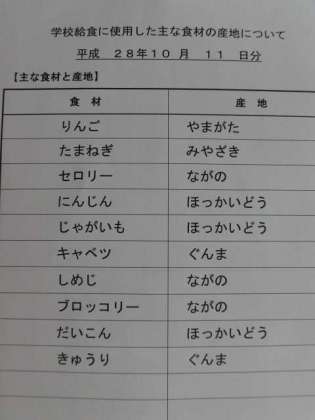 学校給食に使用した主な食材の産地について
平成 28年10 月 11 日分
【主な食材と産地】
食 材 産 地
りんご やまがた
たまねぎ みやざき
セロリー ながの
にんじん ほっかいどう
じゃがいも ほっかいどう
キャベツ ぐんま
しめじ ながの
ブロッコリー ながの
だいこん ほっかいどう
きゅうり ぐんま